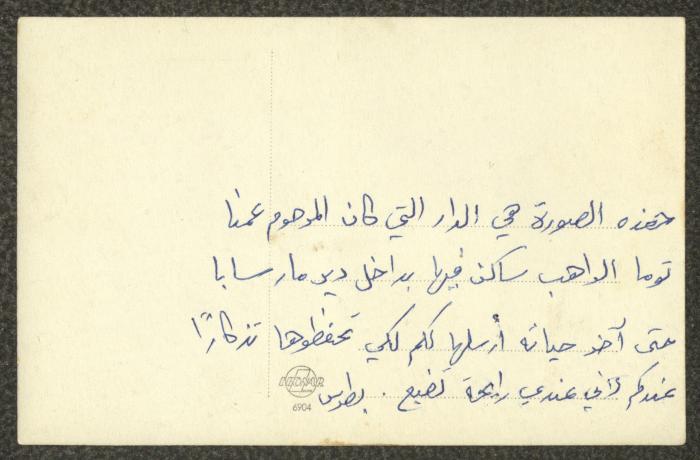 هذه الصورة هي الدار التي كان المرحوم عمنا
توما الراهب ساكن فيها بداخل دير مار سابا
حتى آخر حياته أرسلها لكم لكي تحفظوها تذكارًا
عندكم لأني عندي رايحة تضيع . بطرس
6904